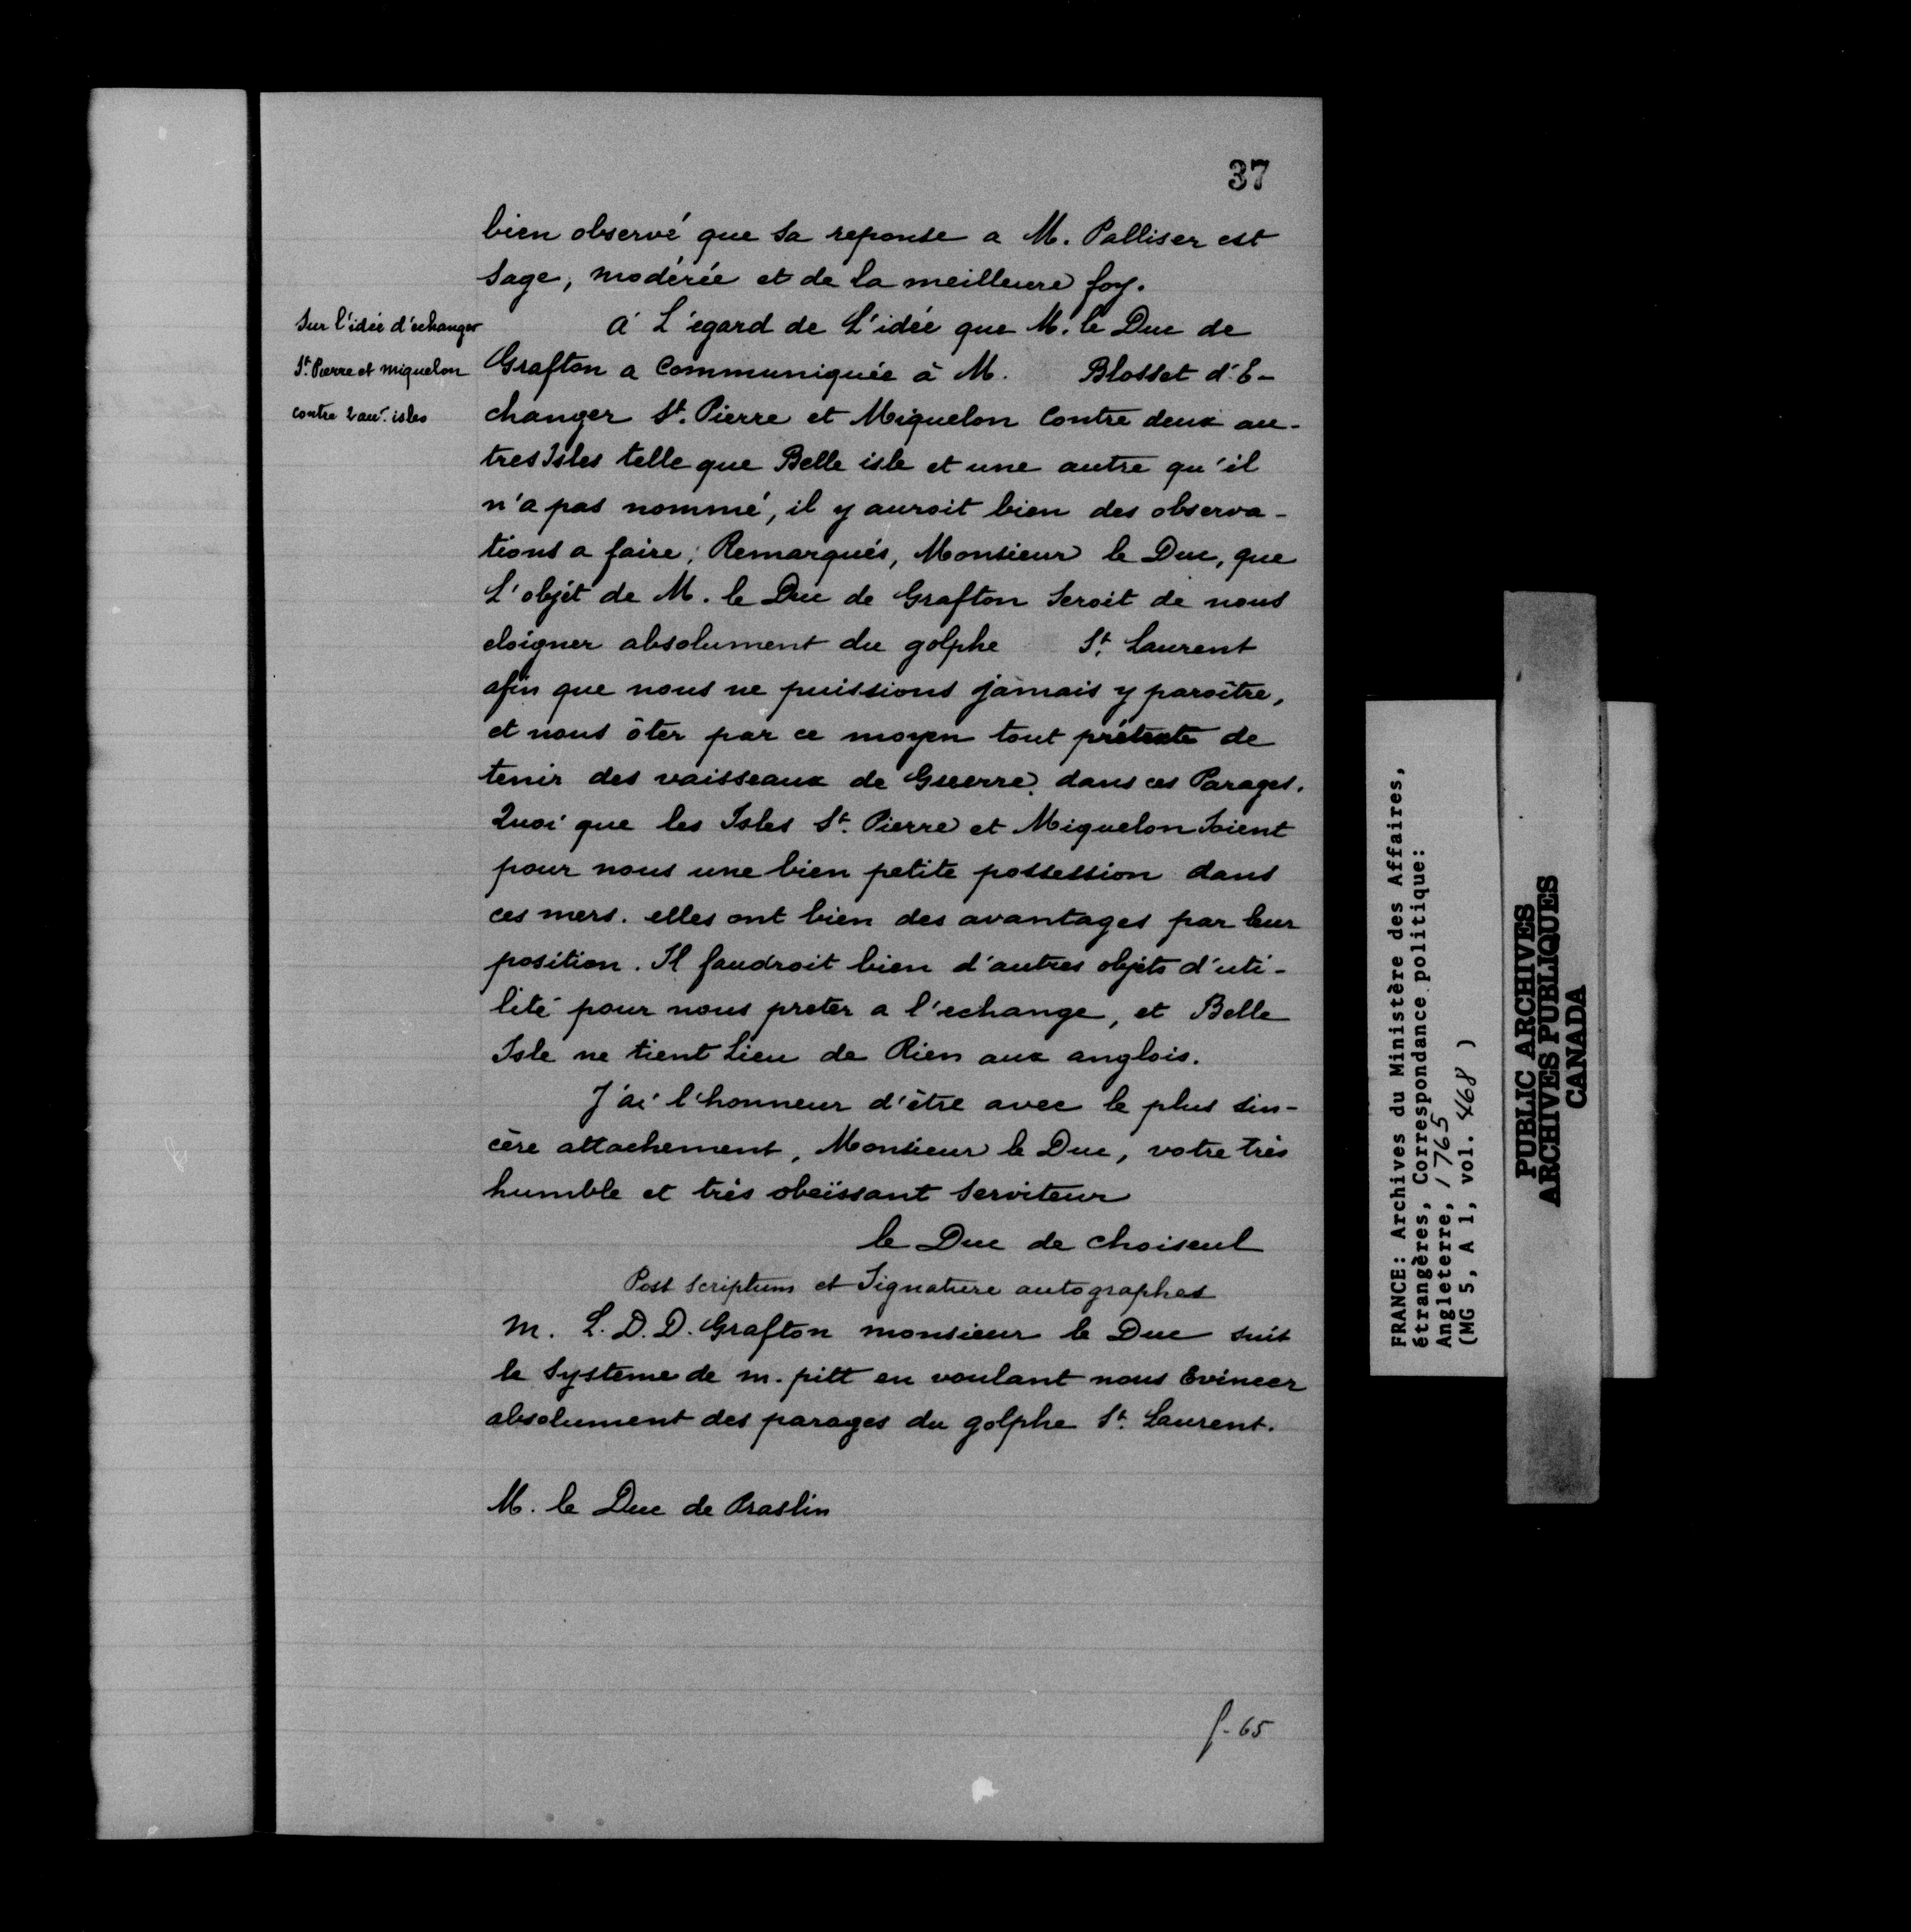 37
bien observé que sa reponse a M. Palliser est
sage, modérée et de la meilleure foy.
Sur l'idée d'echanger
St. Pierre et Miquelon
contre 2 aut. isles
A L'egard de L'idée que M. le Duc de
Grafton a Communiquée à M. Blosset d'E-
changer St. Pierre et Miquelon Contre deux au-
tres Isles telle que Belle isle et une autre qu'il
n'a pas nommé, il y auroit bien des observa-
tions a faire; Remarqués, Monsieur le Duc, que
L'objét de M. le Duc de Grafton Seroit de nous
eloigner absolument du golphe St. Laurent
afin que nous ne puissions jamais y paroître,
et nous ôter par ce moyen tout prétexte de
tenir des vaisseaux de Guerre dans ces Parages.
Quoi que les Isles St. Pierre et Miquelon Soient
pour nous une bien petite possession dans
ces mers. elles ont bien des avantages par leur
position. Il faudroit bien d'autres objéts d'uti-
lité pour nous preter a l'echange, et Belle
Isle ne tient Lieu de Rien aux anglois.
J'ai l'honneur d'être avec le plus sin-
cère attachement, Monsieur le Duc, votre très
humble et très obeïssant Serviteur
le Duc de choiseul
Post Scriptum et Signature autographes
M. L. D. D. Grafton monsieur le Duc suit
le Systeme de m. pitt en voulant nous Evincer
absolument des parages du golphe St. Laurent.
M. le Duc de Praslin
f. 65
FRANCE: Archives du Ministère des Affaires,
étrangères, Correspondance politique:
Angleterre, 1765
(MG 5, A 1, vol. 468 )
PUBLIC ARCHIVES
ARCHIVES PUBLIQUES
CANADA